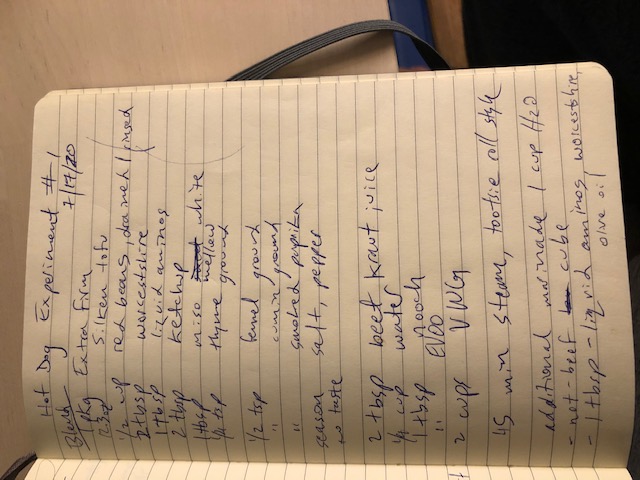 Hot Dog Experiment #1
7/17/20
Blend
1 pkg Extra Firm
12.3oz Silken tofu
1/2 cup red beans, drained / rinsed
2 tbsp worcestshire
1 tbsp liquid aminos
2 tbsp ketchup
1 tbsp miso mellow white
1/4 tsp thyme ground
1/2 tsp fennel ground
" cumin ground
" smoked paprika
season salt, pepper
to taste
2 tbsp beet kraut juice
1/4 cup water
1 tbsp nooch
" EVOO
2 cups VWG
45 min steam, tootsie roll style
additional marinade 1 cup H2O
- not-beef cube
- 1 tbsp - liquid aminos, worcestshire,
olive oil